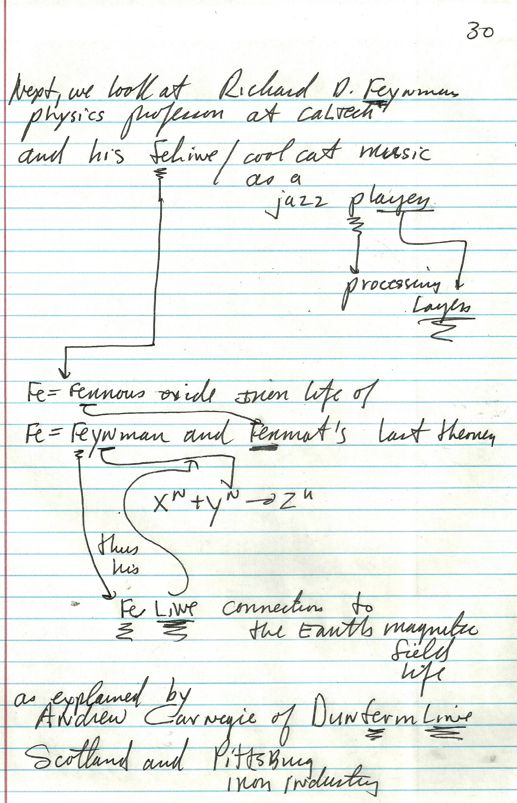 30
Next, we look at Richard D. Feynman
physics professor at CalTech
and his Feline / cool cat music
as a
jazz players
processing
Layers
Fe = Ferrous oxide iron life of
Fe = Feynman and Fermat's last theorey
X^N + y^N → Z^n
thus
his
Fe Line connection to
the Earth's magnetic
field
life
as explained by
Andrew Carnegie of Dunferm Line
Scotland and Pittsburg
iron industry